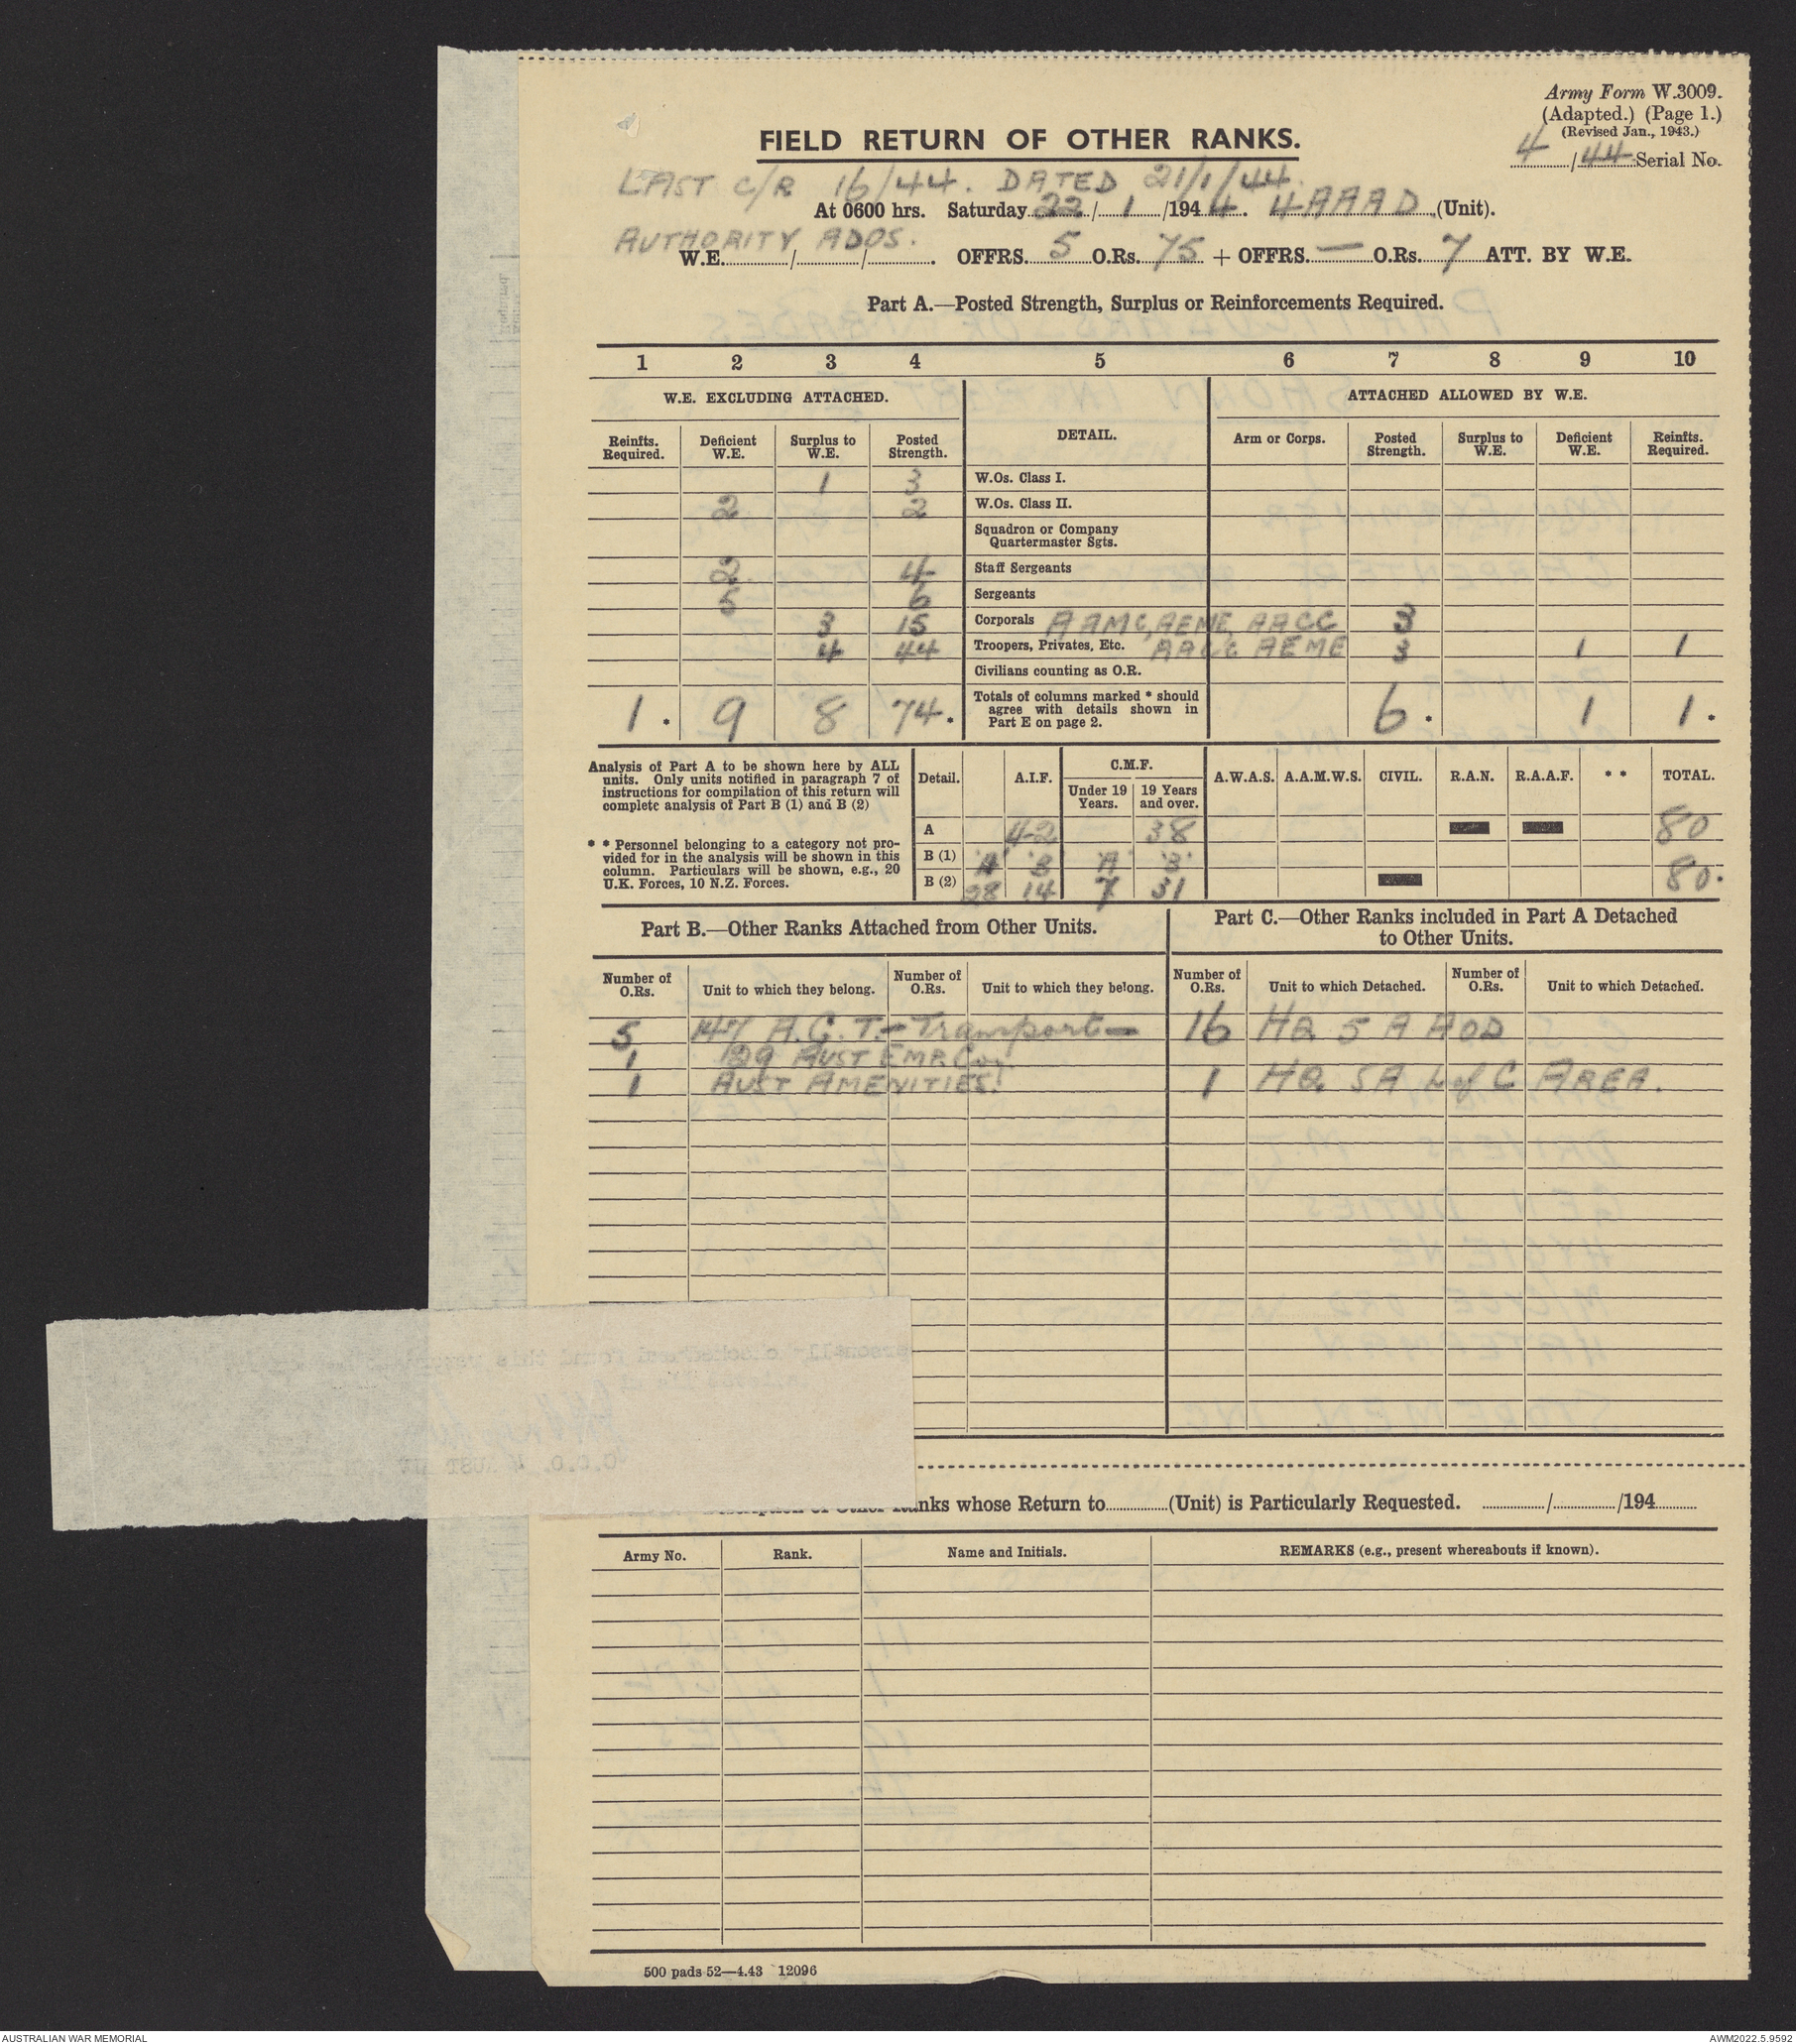 Army Form W.3009.
(Adapted.) (Page 1.)
(Revised Jan., 1943.)
4/44 Serial No.
FIELD RETURN OF OTHER RANKS.
LAST C/R 16/44. DATED 21/1/44.
At 0600 hrs. Saturday 22/1/1944. 4 AAAD (Unit).
AUTHORITY ADOS.
W.E. / / . OFFRS. 5 O.Rs. 75 + OFFRS. — O.Rs. 7 ATT. BY W.E.
Part A.—Posted Strength, Surplus or Reinforcements Required.
1 2 3 4 5 6 7 8 9 10
W.E. EXCLUDING ATTACHED. DETAIL. ATTACHED ALLOWED BY W.E.
Reinfts. Required. Deficient W.E. Surplus to W.E. Posted Strength. Arm or Corps. Posted Strength. Surplus to W.E. Deficient W.E. Reinfts. Required.
1 3 W.Os. Class I.
2 2 W.Os. Class II.
Squadron or Company
Quartermaster Sgts.
2 4 Staff Sergeants
5 6 Sergeants
3 15 Corporals AAMC, AEME, AACC 3
4 44 Troopers, Privates, Etc. AACC AEME 3 1 1
Civilians counting as O.R.
1 * 9 8 74 * Totals of columns marked * should agree with details shown in Part E on page 2. 6 * 1 1 *
Analysis of Part A to be shown here by ALL
units. Only units notified in paragraph 7 of
instructions for compilation of this return will
complete analysis of Part B (1) and B (2)
* * Personnel belonging to a category not pro-
vided for in the analysis will be shown in this
column. Particulars will be shown, e.g., 20
U.K. Forces, 10 N.Z. Forces.
Detail. A.I.F. C.M.F. Under 19 Years. 19 Years and over. A.W.A.S. A.A.M.W.S. CIVIL. R.A.N. R.A.A.F. * * TOTAL.
A 42 38 80
B (1) 'A' 'B' 'A' 'B'
B (2) 28 14 7 31 80.
Part B.—Other Ranks Attached from Other Units.
Part C.—Other Ranks included in Part A Detached
to Other Units.
Number of O.Rs. Unit to which they belong. Number of O.Rs. Unit to which they belong. Number of O.Rs. Unit to which Detached. Number of O.Rs. Unit to which Detached.
5 147 A.G.T.- Transport— 16 HQ 5 A AOD
1 129 AUST EMP. Co.
1 AUST AMENITIES. 1 HQ 5A L of C AREA.
Ranks whose Return to (Unit) is Particularly Requested. / /194
Army No. Rank. Name and Initials. REMARKS (e.g., present whereabouts if known).
500 pads 52—4.43 12096
AUSTRALIAN WAR MEMORIAL
AWM2022.5.9592